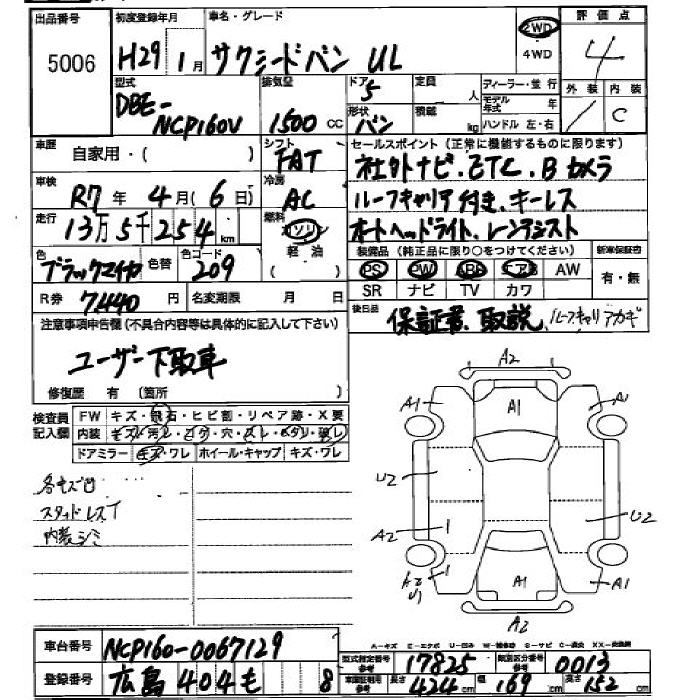 出品番号 初度登録年月 車名・グレード 評価点
5006 H29 1月 サクシードバン UL 2WD ・4WD 4
型式 排気量 ドア 定員 人 ディーラー・並行 外装 内装
DBE-NCP160V 1500cc 5 モデル年式 年 C
形状 バン 積載 kg ハンドル 左・右
車歴 自家用・( ) シフト FAT セールスポイント(正常に機能するものに限ります)
車検 R7年 4月(6日) 冷房 AC 社外ナビ.ETC.Bカメラ
ルーフキャリア付き.キーレス
走行 13万5千254km 燃料 ガソリン 軽油 オートヘッドライト.レーンアシスト
色 ブラックマイカ 色替 色コード 209 装備品(純正品に限り○をつけてください) 新車保証書
PS PW ABS エアB AW 有・無
R券 7440円 名変期限 月 日 SR ナビ TV カワ
注意事項申告欄(不具合内容等は具体的に記入して下さい) 後日品 保証書.取説
ユーザー下取車
修復歴 有 [箇所 ]
検査員記入欄 FW キズ・飛石・ヒビ割・リペア跡・X要
内装 キズ・汚レ・コゲ・穴・スレ・ヘタリ・破レ
ドアミラー キズ・ワレ ホイール・キャップ キズ・ワレ
各キズ凹
スタッドレスT
内装シミ
A2
A1 A1 A1
U2
A2 U2
A2 U1 A1 A1
A2
車台番号 NCP160-0067129
A-キズ E-エクボ U-凹み
型式指定番号 参考 17825 類別区分番号 参考 0013
登録番号 広島 404 も 8 車庫証明用 参考 長さ 424cm 幅 169cm 高さ 152cm